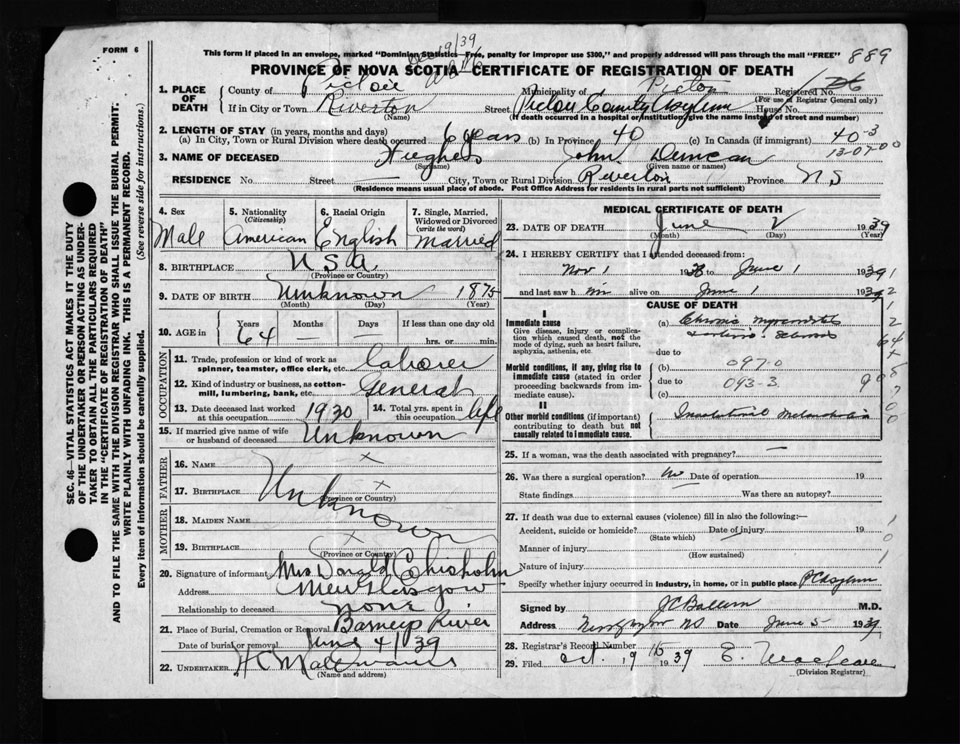 FORM 6
This form if placed in an envelope, marked "Dominion Statistics Free, penalty for improper use $300," and properly addressed will pass through the mail "FREE"
889
PROVINCE OF NOVA SCOTIA CERTIFICATE OF REGISTRATION OF DEATH
1. PLACE OF DEATH
County of Pictou Municipality of Pictou Registered No. 26
(For use of Registrar General only)
If in City or Town Riverton Street Pictou County Asylum House No.
(Name) (If death occurred in a hospital or institution, give the name instead of street and number)
2. LENGTH OF STAY (in years, months and days)
(a) In City, Town or Rural Division where death occurred 6 years (b) In Province 40 (c) In Canada (if immigrant) 40
3. NAME OF DECEASED Hughes John Duncan
(Surname) (Given name or names)
RESIDENCE No. Street City, Town or Rural Division Riverton Province NS
(Residence means usual place of abode. Post Office Address for residents in rural parts not sufficient)
SEC. 46—VITAL STATISTICS ACT MAKES IT THE DUTY
OF THE UNDERTAKER OR PERSON ACTING AS UNDER-
TAKER TO OBTAIN ALL THE PARTICULARS REQUIRED
IN THE "CERTIFICATE OF REGISTRATION OF DEATH"
AND TO FILE THE SAME WITH THE DIVISION REGISTRAR WHO SHALL ISSUE THE BURIAL PERMIT.
WRITE PLAINLY WITH UNFADING INK. THIS IS A PERMANENT RECORD.
Every item of information should be carefully supplied. (See reverse side for instructions.)
4. Sex Male
5. Nationality (Citizenship) American
6. Racial Origin English
7. Single, Married, Widowed or Divorced (write the word) Married
8. BIRTHPLACE USA
(Province or Country)
9. DATE OF BIRTH Unknown 1875
(Month) (Day) (Year)
10. AGE in Years Months Days If less than one day old
64 — — hrs. or min.
OCCUPATION
11. Trade, profession or kind of work as spinner, teamster, office clerk, etc. Laborer
12. Kind of industry or business, as cotton-mill, lumbering, bank, etc. General
13. Date deceased last worked at this occupation 1930 14. Total yrs. spent in this occupation Life
15. If married give name of wife or husband of deceased Unknown
FATHER
16. NAME x
17. BIRTHPLACE x
(Province or Country)
Unknown
MOTHER
18. MAIDEN NAME
19. BIRTHPLACE x
(Province or Country)
20. Signature of informant Mrs Donald Chisholm
Address New Glasgow
Relationship to deceased none
21. Place of Burial, Cremation or Removal River
Date of burial or removal June 4/39
22. UNDERTAKER
(Name and address)
MEDICAL CERTIFICATE OF DEATH
23. DATE OF DEATH June 2 1939
(Month) (Day) (Year)
24. I HEREBY CERTIFY that I attended deceased from:
Nov 1 1938 to June 1 1939
and last saw him alive on June 1 1939
CAUSE OF DEATH
I
Immediate cause
Give disease, injury or complication which caused death, not the mode of dying, such as heart failure, asphyxia, asthenia, etc.
(a) Chronic
due to
Morbid conditions, if any, giving rise to immediate cause (stated in order proceeding backwards from immediate cause).
(b) 097-0
due to 093-3
(c)
II
Other morbid conditions (if important) contributing to death but not causally related to immediate cause.
25. If a woman, was the death associated with pregnancy? —
26. Was there a surgical operation? no Date of operation 19
State findings Was there an autopsy?
27. If death was due to external causes (violence) fill in also the following:—
Accident, suicide or homicide? Date of injury 19
(State which)
Manner of injury
(How sustained)
Nature of injury
Specify whether injury occurred in industry, in home, or in public place P C Asylum
Signed by M.D.
Address NS Date June 5 1939
28. Registrar's Record Number
29. Filed Oct. 19 1939
(Division Registrar)